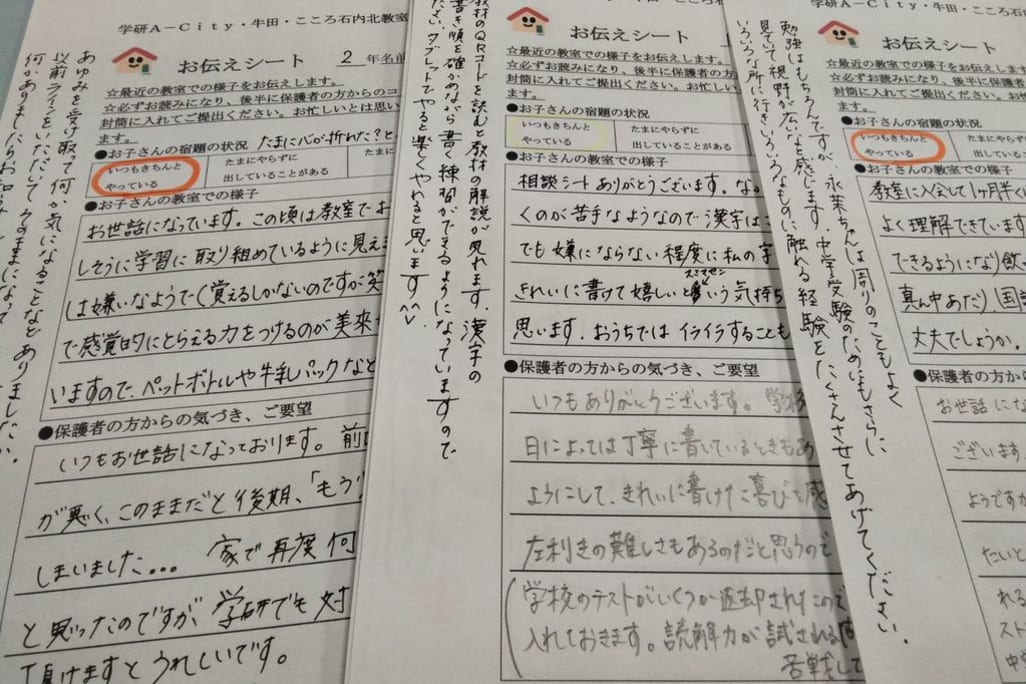 学研A－City・牛田・こころ石内北教室
お伝えシート 2 年名前
☆最近の教室での様子をお伝えします。
☆必ずお読みになり、後半に保護者の方からのコ
封筒に入れてご提出ください。お忙しいとは思い
ます。
●お子さんの宿題の状況 たまに心が折れた？と
いつもきちんと
やっている
たまにやらずに
出していることがある
たまに
●お子さんの教室での様子
お世話になっています。この頃は教室でお
しそうに学習に取り組めているように見え
は嫌いなようで（覚えるしかないのですが笑
で感覚的にとらえる力をつけるのが美来
いますので、ペットボトルや牛乳パックなど
●保護者の方からの気づき、ご要望
いつもお世話になっております。前
が悪く、このままだと後期、「もう
しまいました… 家で再度 何
と思ったのですが、学研でも対
頂けますとうれしいです。
あゆみを受け取って何か気になることなどありましたら
以前ラインをいただいてそのままになって
何かありましたらお知らせ
教材のQRコードを読むと教材の解説が見れます。漢字の
書き順を確かめながら書く練習ができるようになっていますので
タブレットでやると楽しくやれると思います^^
お伝えシート
☆最近の教室での様子をお伝えします。
☆必ずお読みになり、後半に保護者の方
封筒に入れてご提出ください。お忙しい
ます。
●お子さんの宿題の状況
いつもきちんと
やっている
たまにやらずに
出していることがある
●お子さんの教室での様子
相談シートありがとうございます。な
くのが苦手なようなので漢字は
でも嫌にならない程度に私の字
きれいに書けて嬉しいという気持ち
思います。おうちではイライラすることも
●保護者の方からの気づき、ご要望
いつもありがとうございます。学校
日によっては丁寧に書いているときもあ
ようにして、きれいに書けた喜びを感
左利きの難しさもあるのだと思うので
（学校のテストがいくつか返却されたので
入れておきます。読解力が試される
苦戦して
勉強はもちろんですが、永茉ちゃんは周りのこともよく
見ていて視野が広いなと感じます。中学受験のためにもさらに
いろいろな所に行きいろいろなものに触れる経験をたくさんさせてあげてください。
学研A－City・牛田・こ
お伝えシート
☆最近の教室での様子をお伝えし
☆必ずお読みになり、後半に保護
封筒に入れてご提出ください。お
ます。
●お子さんの宿題の状況
いつもきちんと
やっている
たまにやらずに
出していること
●お子さんの教室での様子
教室に入会して1ヶ月半く
よく理解できています
できるようになり飲
真ん中あたり（国語
丈夫でしょうか。
●保護者の方から
お世話にな
ございます
ようですか
たいと
れる
スト
中